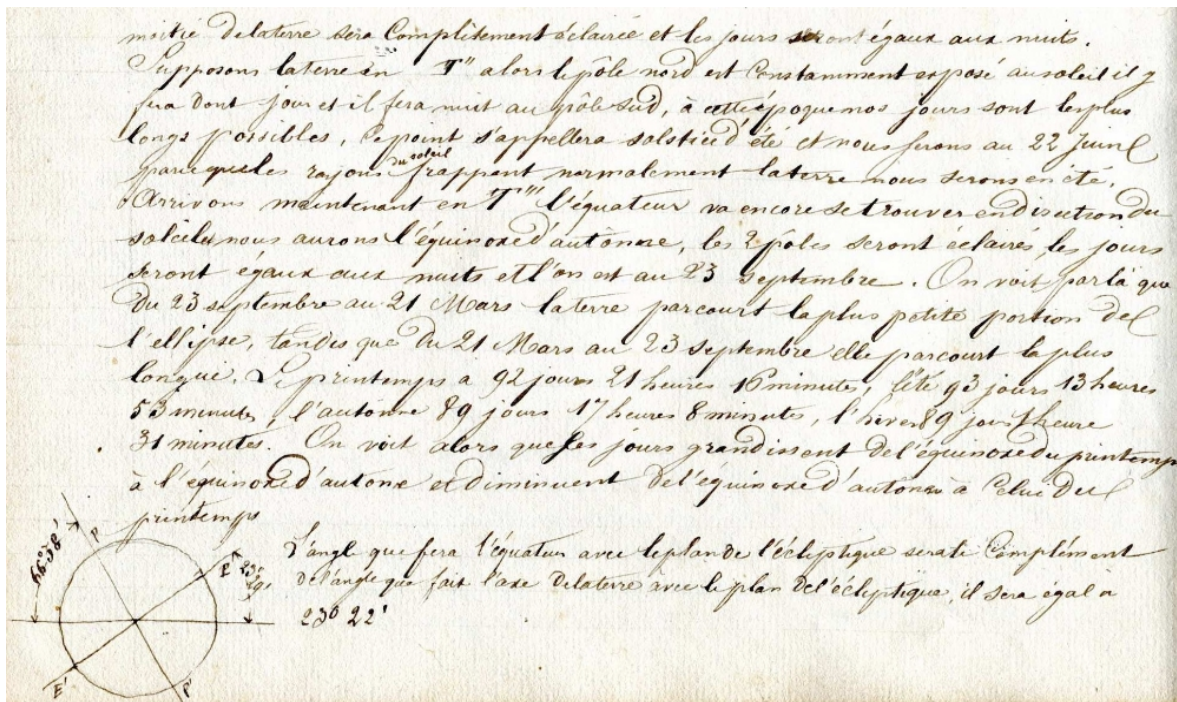 moitié de la terre sera Complètement éclairée et les jours seront égaux aux nuits.
Supposons la terre en T'' alors le pôle nord est Constamment exposé au soleil il y
fera dont jour et il fera nuit au pôle Sud, à cette époque nos jours sont les plus
longs possibles, ce point s'appellera solstice d'été et nous serons au 22 Juin
parce que les rayons du soleil frappent normalement la terre nous serons en été.
Arrivons maintenant en T''' l'équateur va encore se trouver en direction du
soleil nous aurons l'équinoxe d'autonne, les 2 pôles seront éclairés, les jours
seront égaux aux nuits et l'on est au 23 septembre. On voit par là que
du 23 septembre au 21 Mars la terre parcourt la plus petite portion de
l'ellipse, tandis que du 21 Mars au 23 septembre elle parcourt la plus
longue. Le printemps a 92 jours 21 heures 16 minutes, l'été 93 jours 13 heures
53 minutes, l'autonne 89 jours 17 heures 8 minutes, l'hiver 89 jours 1 heure
31 minutes. On voit alors que les jours grandissent de l'équinoxe du printemps
à l'équinoxe d'autone et diminuent de l'équinoxe d'autone à Celui du
printemps
L'angle que fera l'équateur avec le plan de l'écliptique sera le Complément
de l'angle que fait l'axe de la terre avec le plan de l'écliptique, il sera égal à
23° 22'
P
E
23°
E'
P'